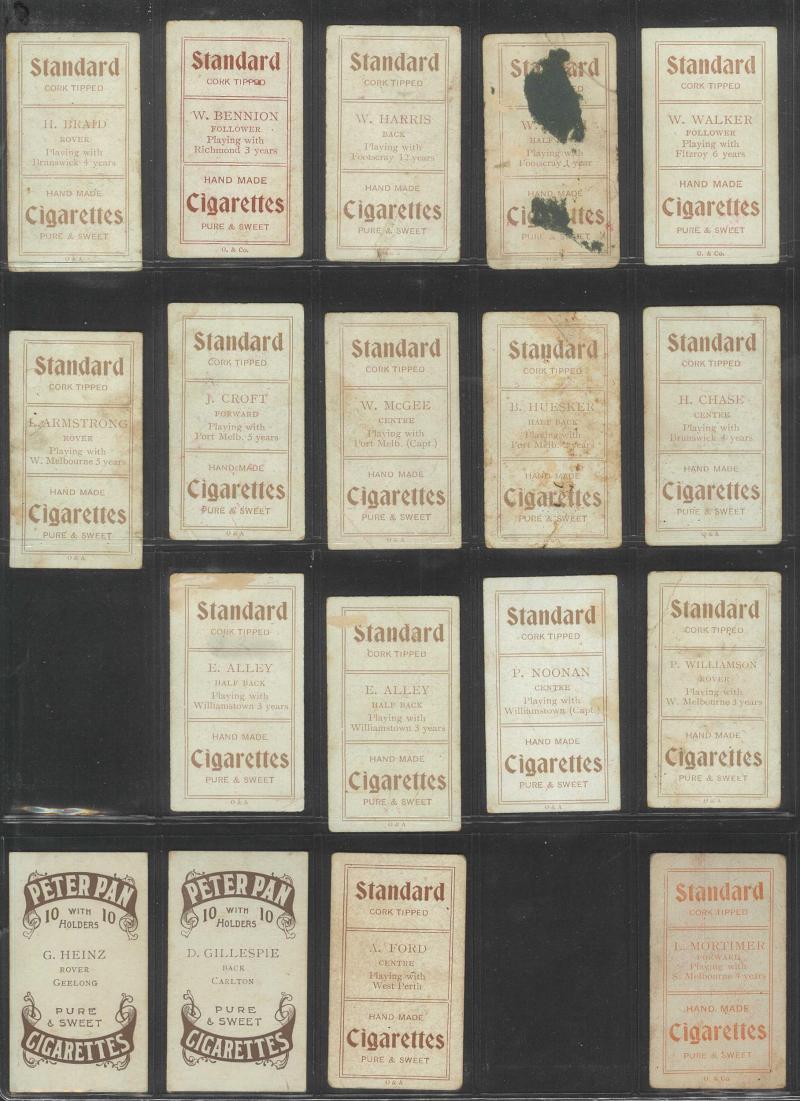 Standard
CORK TIPPED
H. BRAID
ROVER
Playing with
Brunswick 4 years
HAND MADE
Cigarettes
PURE & SWEET
O & A
Standard
CORK TIPPED
W. BENNION
FOLLOWER
Playing with
Richmond 3 years
HAND MADE
Cigarettes
PURE & SWEET
O. & Co.
Standard
CORK TIPPED
W. HARRIS
BACK
Playing with
Footscray 12 years
HAND MADE
Cigarettes
PURE & SWEET
O & A
Standard
CORK TIPPED
W.
HALF
Playing with
Footscray 1 year
HAND MADE
Cigarettes
PURE & SWEET
Standard
CORK TIPPED
W. WALKER
FOLLOWER
Playing with
Fitzroy 6 years
HAND MADE
Cigarettes
PURE & SWEET
O. & Co.
Standard
CORK TIPPED
ARMSTRONG
ROVER
Playing with
W. Melbourne 3 years
HAND MADE
Cigarettes
PURE & SWEET
O & A
Standard
CORK TIPPED
J. CROFT
FORWARD
Playing with
Port Melb. 5 years
HAND MADE
Cigarettes
PURE & SWEET
O & A
Standard
CORK TIPPED
W. McGEE
CENTRE
Playing with
Port Melb. (Capt.)
HAND MADE
Cigarettes
PURE & SWEET
O & A
Standard
CORK TIPPED
B. HUESKER
HALF BACK
Playing with
Port Melb. years
HAND MADE
Cigarettes
PURE & SWEET
O & A
Standard
CORK TIPPED
H. CHASE
CENTRE
Playing with
Brunswick 4 years
HAND MADE
Cigarettes
PURE & SWEET
O & A
Standard
CORK TIPPED
E. ALLEY
HALF BACK
Playing with
Williamstown 3 years
HAND MADE
Cigarettes
PURE & SWEET
O & A
Standard
CORK TIPPED
E. ALLEY
HALF BACK
Playing with
Williamstown 3 years
HAND MADE
Cigarettes
PURE & SWEET
O & A
Standard
CORK TIPPED
P. NOONAN
CENTRE
Playing with
Williamstown (Capt.)
HAND MADE
Cigarettes
PURE & SWEET
O & A
Standard
CORK TIPPED
P. WILLIAMSON
ROVER
Playing with
W. Melbourne 3 years
HAND MADE
Cigarettes
PURE & SWEET
O & A
PETER PAN
10 WITH 10
HOLDERS
G. HEINZ
ROVER
GEELONG
PURE
& SWEET
CIGARETTES
PETER PAN
10 WITH 10
HOLDERS
D. GILLESPIE
BACK
CARLTON
PURE
& SWEET
CIGARETTES
Standard
CORK TIPPED
A. FORD
CENTRE
Playing with
West Perth
HAND MADE
Cigarettes
PURE & SWEET
O & A
Standard
CORK TIPPED
L. MORTIMER
FORWARD
Playing with
S. Melbourne 4 years
HAND MADE
Cigarettes
PURE & SWEET
O. & Co.